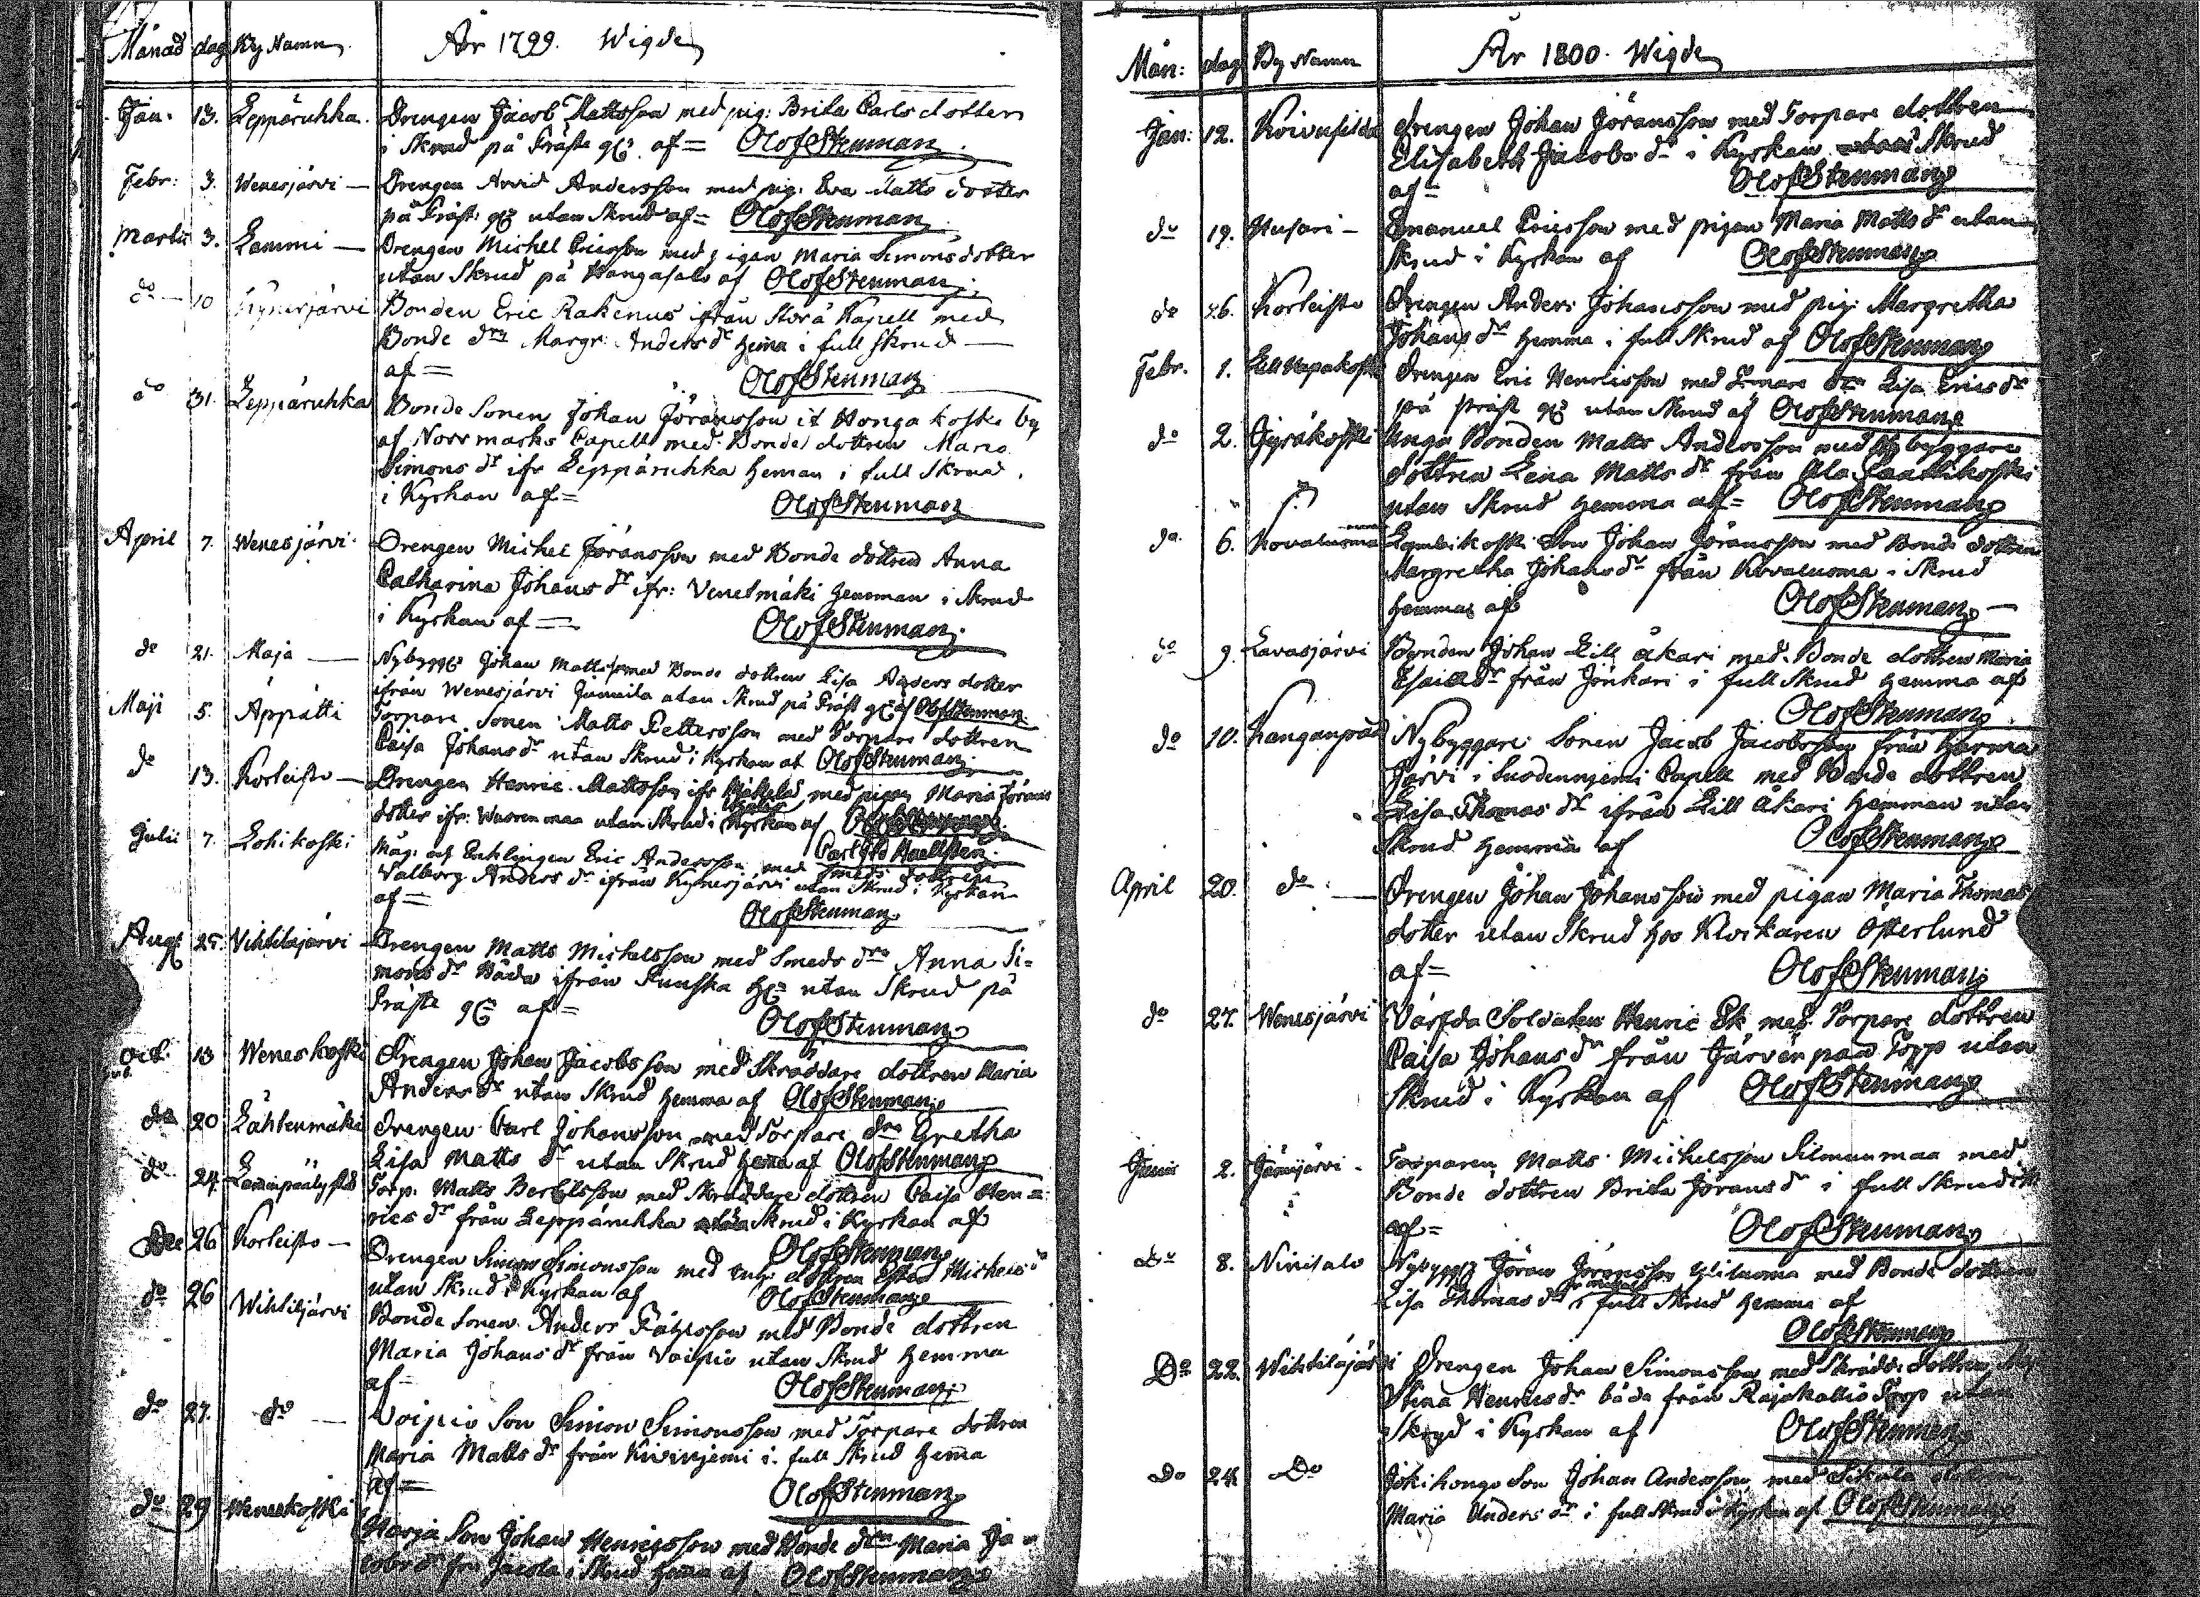 Månad dag By Namn År 1799. Wigde
Jan. 13. Leppäruhka. Drengen Jacob Mattsson med pig: Brita Carls dotter
i Skrud på Präste af= Olof Stenman
Febr: 3. Wenesjärvi — Drengen Arvid Andersson med pig. Eva Matts doter
på Präst: utan Skrud af= Olof Stenman
Martii 3. Lammi — Drengen Michel Ericsson med pigan Maria Simonsdotter
utan Skrud på Kangasalo af Olof Stenman
do 10 Kynesjärvi Bonden Eric Rakenus ifrån Storå Kapell med
Bonde dren Margr: Anders dr hema i full skrud —
af= Olof Stenman
do 31. Leppäruhka Bonde Sonen Johan Jöransson if Honga koski by
af Norrmarks Capell med Bonde dottren Maria
Simons dr ifr Leppäruhka heman i full Skrud.
i Kyrkan af= Olof Stenman
April 7. Wenesjärvi. Drengen Michel Jöransson med Bonde dottren Anna
Catharina Johans dr ifr: Venetmäki hemman i Skrud
i Kyrkan af= Olof Stenman
do 21. Maja — Nybygg Johan Mattsson med Bonde dottren Lisa Anders dotter
ifrån Wenesjärvi Junnila utan Skrud på Präst af Olof Stenman
Maji 5. Äppätti Torpare Sonen Matts Pettersson med Torpare dottren
Caisa Johans dr utan Skrud i Kyrkan af Olof Stenman
do 13. Korleisto — Drengen Henric Mattsson ifr med pigan Maria Jörans
dotter ifr: utan Skrud i Kyrkan af
Julii 7. Lohikoski Måg. och Enklingen Eric Andersson med Smeds dottren
Valborg Anders dr ifrån Kynesjärvi utan Skrud i Kyrkan
af= Olof Stenman
Aug 25. Vihtiläjärvi — Drengen Matts Michelsson med Smeds dren Anna Si=
mons dr båda ifrån utan Skrud på
Präste af= Olof Stenman
Oct. 13 Weneskoski Drengen Johan Jacobsson med Skräddare dottren Maria
Anders dr utan Skrud hemma af Olof Stenman
do 20 Lähtenmäki Drengen Carl Johansson med Torpare dren Gretha
Lisa Matts dr utan Skrud hema af Olof Stenman
do 24. Torp. Matts Bertilsson med Skräddare dottren Caisa Hen=
rics dr från Leppäruhka Skrud i Kyrkan af
Olof Stenman
Dec 26 Korleisto — Drengen Simon Simonsson med dottren Michels dr
utan Skrud i Kyrkan af Olof Stenman
do 26 Wihtiljärvi Bonde Sonen Anders med Bonde dottren
Maria Johans dr från Voipio utan Skrud hemma
af= Olof Stenman
do 27. do — Voipio Son Simon Simonsson med Torpare dottren
Maria Matts dr från Kivinjemi i full Skrud hema
af= Olof Stenman
do 29 Weneskoski Harja Son Johan Henricsson med Bonde dren Maria Ja=
cobs dr frn Jacola i Skrud hema af Olof Stenman
Mån: dag By Namn År 1800. Wigde
Jan: 12. Drengen Johan Jöransson med Torpare dottren
Elisabeth Jacobs dr i Kyrkan Skrud
af= Olof Stenman
do 19. Husari — Emanuel Ericsson med pigan Maria Matts dr utan
Skrud i Kyrkan af Olof Stenman
do 26. Korleisto Drengen Anders Johansson med pig: Margretha
Johans dr hemma i full Skrud af Olof Stenman
Febr. 1. Lill Napakoski Drengen Eric Henricsson med dren Lisa Erics dr
på Präst utan Skrud af Olof Stenman
do 2. Jyräkoski Unga Bonden Matts Andersson med Nybyggare
dottren Lena Matts dr från
utan Skrud hemma af= Olof Stenman
do 6. Kovalusma Son Johan Jöransson med Bonde dottren
Margretha Johans dr från Kovalusma i Skrud
hemma af Olof Stenman —
do 9. Lavasjärvi Bonden Johan Lill åkari med Bonde dottren Maria
Esaiae dr från Jönkari i full Skrud hemma af
Olof Stenman
do 10. Kanganpää Nybyggare Sonen Jacob Jacobsson från Karma
Järvi i Suodennjemi Capell med Bonde dottren
Lisa Thomas dr ifrån Lill åkari hemman utan
Skrud hemma af Olof Stenman
April 20. do — Drengen Johan Johansson med pigan Maria Thomas
doter utan Skrud hos Klockaren Österlund
af= Olof Stenman
do 27. Wenesjärvi Värfda Soldaten Henric Ek med Torpare dottren
Caisa Johans dr från Järvenpää Torp utan
Skrud i Kyrkan af Olof Stenman
Junii 2. Jämijärvi. Torparen Matts Michelsson Silmunmaa med
Bonde dottren Brita Jörans dr i full Skrud
af= Olof Stenman
Do 8. Niinisalo Nybygg Jöran Jöransson Ylilusma med Bonde dottren
Lisa Thomas dr i full Skrud hemma af
Olof Stenman
Do 22. Wihtiläjärvi Drengen Johan Simonsson med Skrädd: dottren
Stina Henrics dr båda från Rajakallio Torp utan
Skrud i Kyrkan af Olof Stenman
Do 24 Do Jokihongo Son Johan Andersson med Sikala
Maria Anders dr i full Skrud i Kyrkan af Olof Stenman